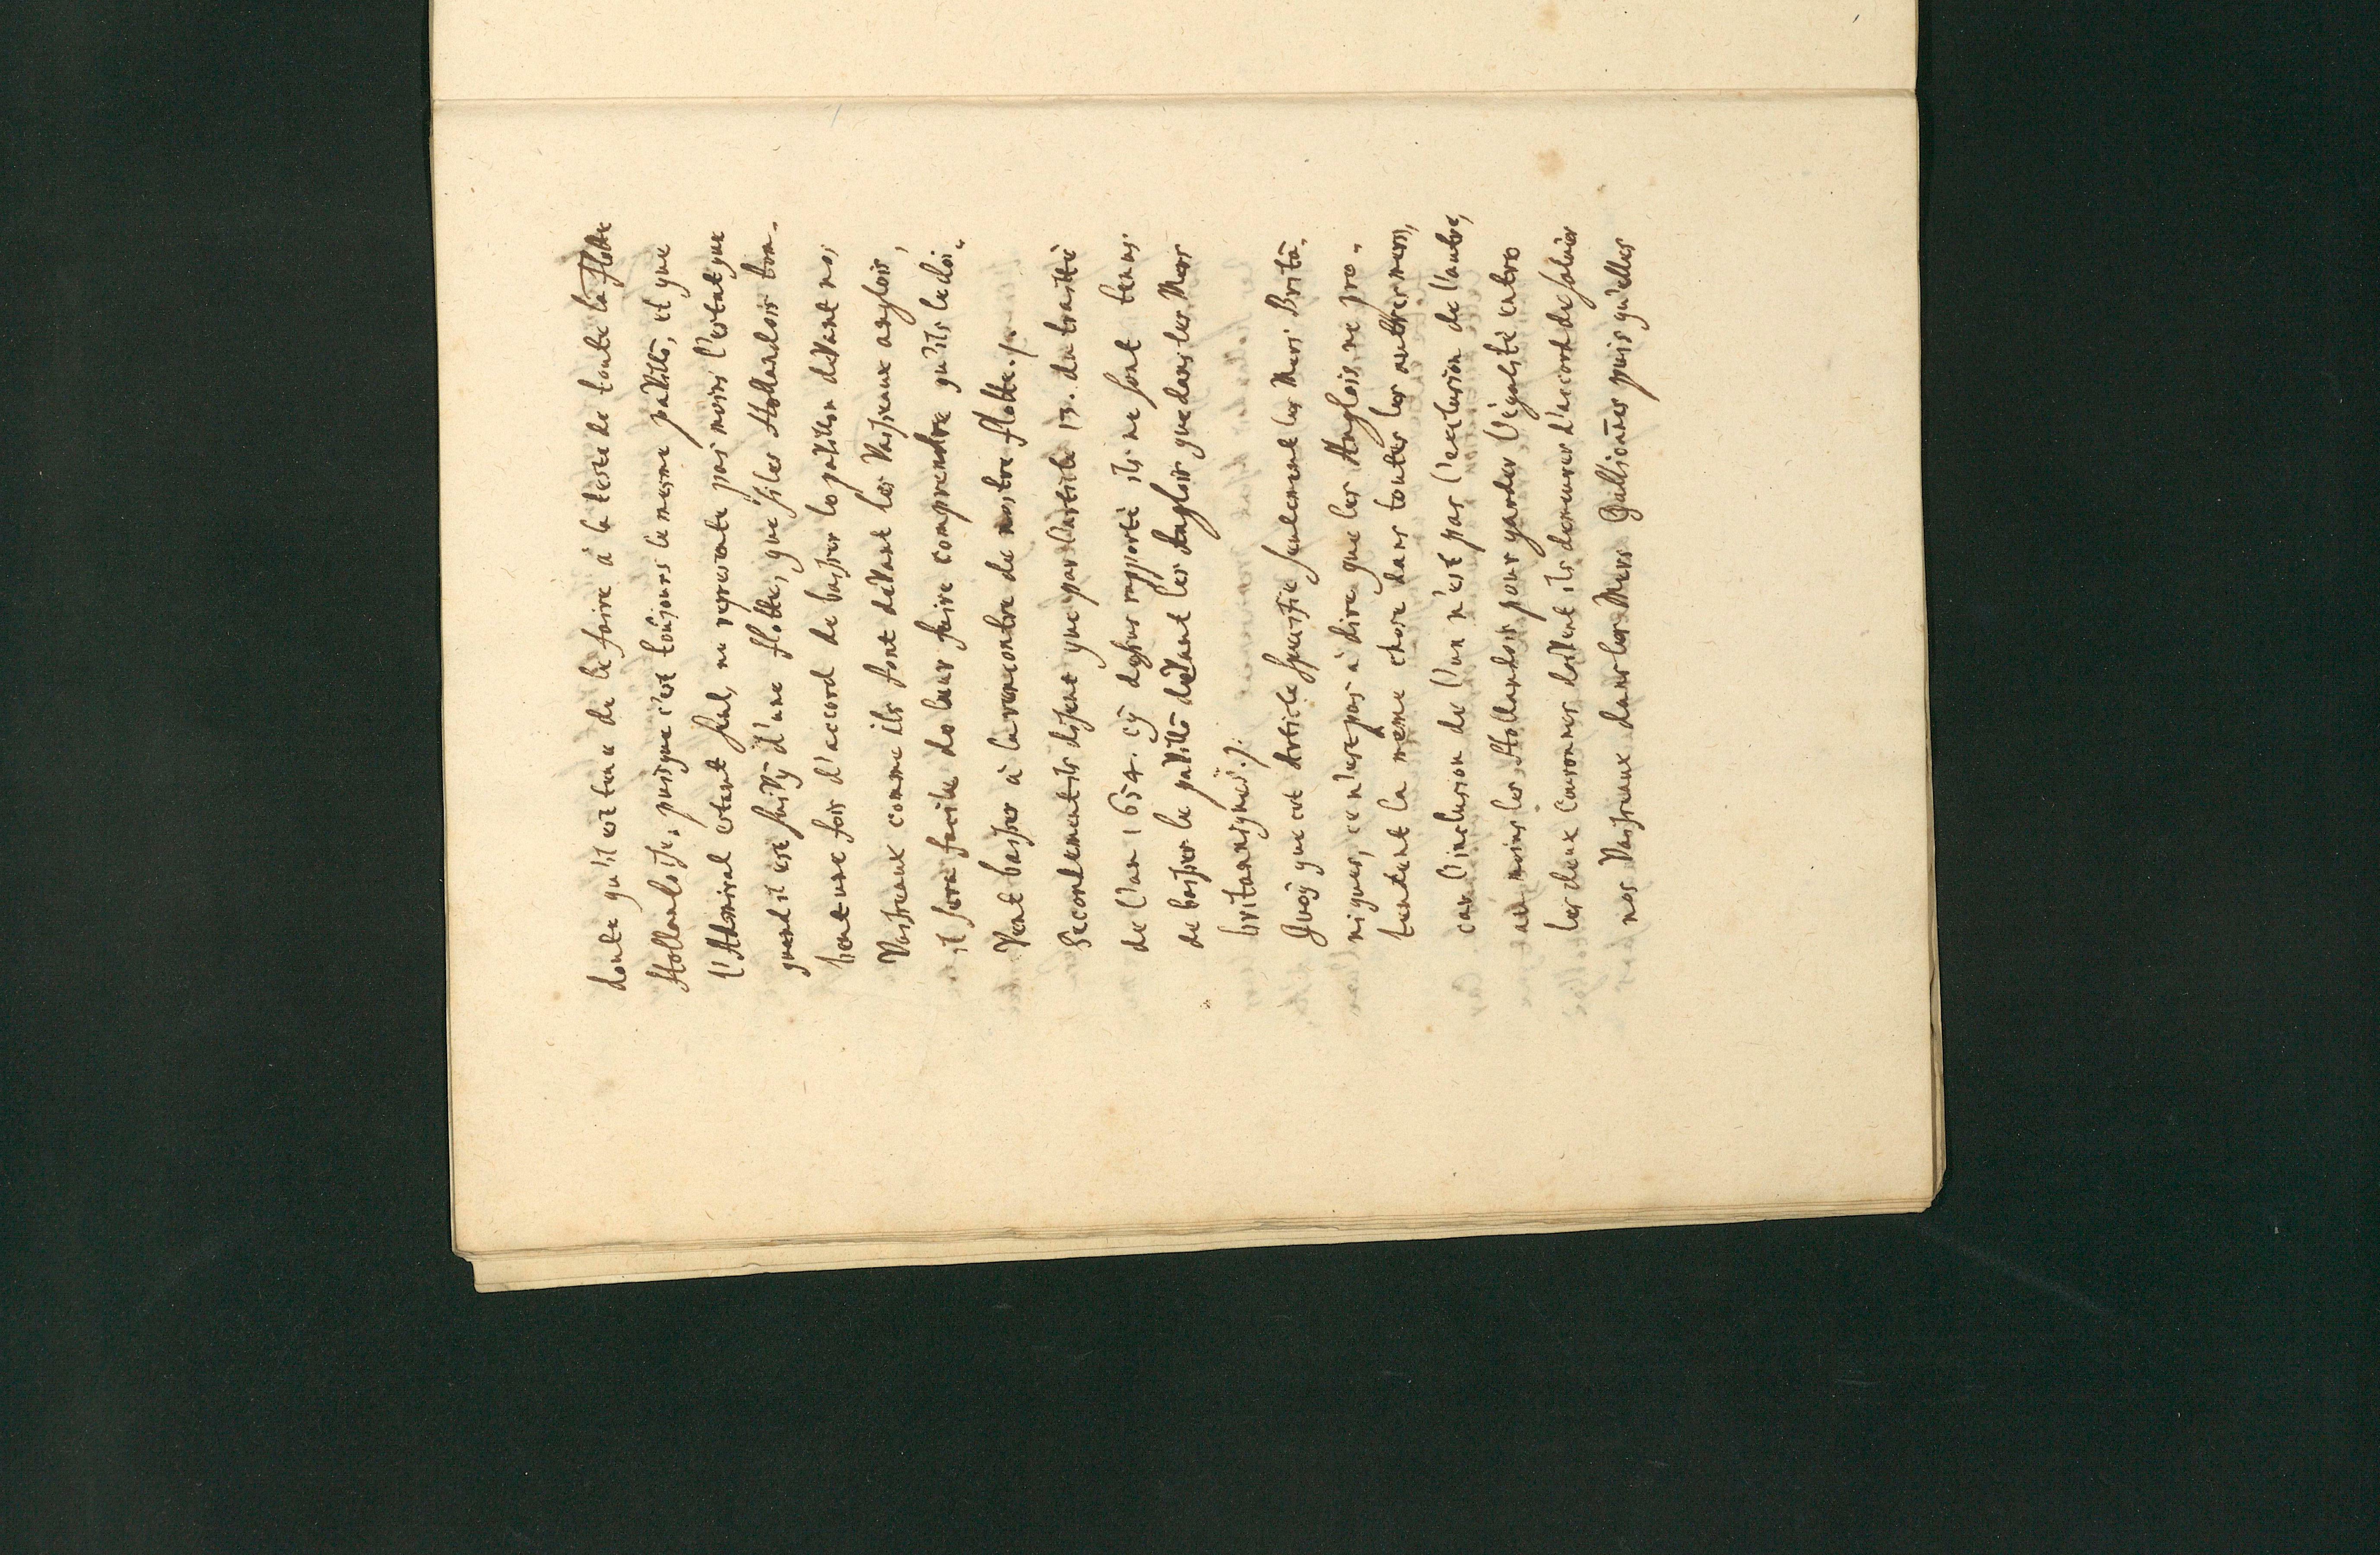 doute qu'il est tenu de le faire à la teste de toute la flotte
Hollandoise, puisque c'est tousjours le mesme pavillō, et que
l'Admiral estant seul, ne represente pas moins l'estat que
quand il est suivÿ d'une flotte, que si les Hollandois tom-
bent une fois d'accord de baisser le pavillon devant nos
Vaisseaux comme ils font devant les Vaisseaux anglois,
il sera facile de leur faire comprendre qu'ils le doi-
vent baisser à la rencontre de nostre flotte./.
Secondement ils disent que par l'article 13. du traitté
de l'an 1654. cÿ dessus rapporté ils ne sont tenus.
de baisser le pavillō devant les Anglois que dans les Mers
britanniques./.
Quoÿ que cet Article specifie seulement les Mers Britā-
niques, ce n'est pas à dire que les Anglois ne pre-
tendent la meme chose dans toutes les autres mers,
car l'inclusion de l'un n'est pas l'exclusion de l'autre,
au moins les Hollandois pour garder l'égalité entre
les deux Couronnes doivent ils demeurer d'accord de saluër
nos Vaisseaux dans les Mers Gallicanes puis qu'elles